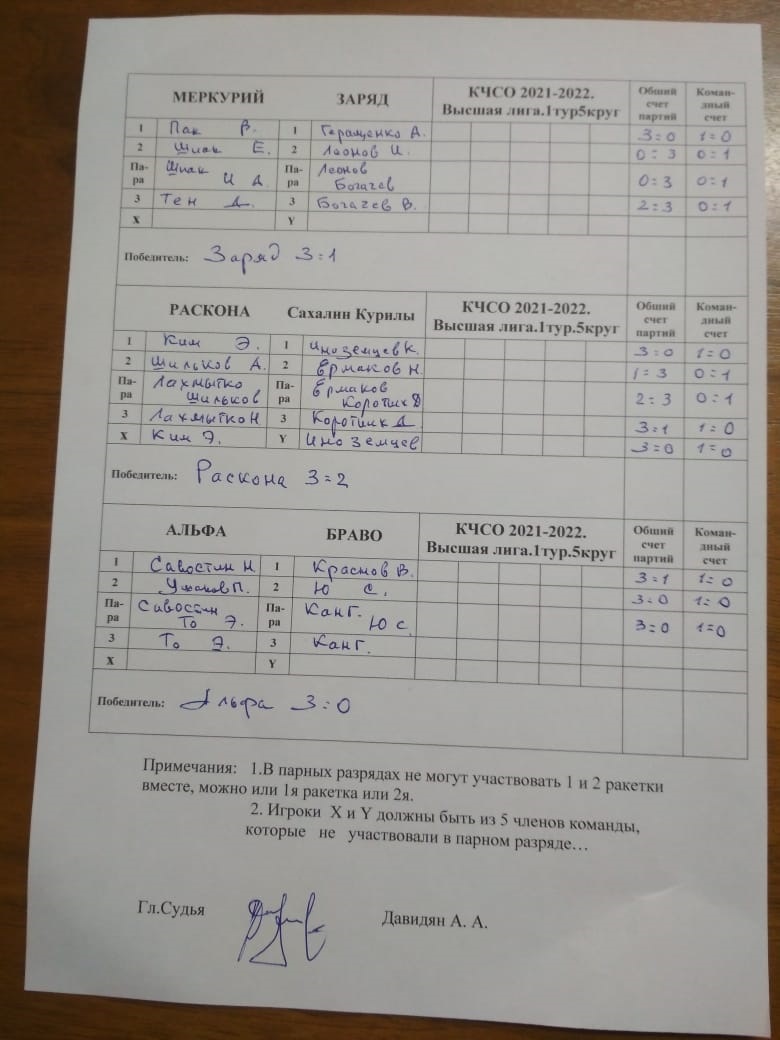 МЕРКУРИЙ ЗАРЯД КЧСО 2021-2022. Высшая лига.1тур5круг Общий счет партий Коман-дный счет
1 Пак В. 1 Геращенко А. 3=0 1=0
2 Шпак Е. 2 Леонов И. 0:3 0:1
Па-ра Шпак И Д. Па-ра Леонов Богачев 0:3 0:1
3 Тен Д. 3 Богачев В. 2:3 0:1
X Y
Победитель: Заряд 3:1
РАСКОНА Сахалин Курилы КЧСО 2021-2022. Высшая лига.1тур.5круг Общий счет партий Коман-дный счет
1 Ким Э. 1 Иноземцев К. 3=0 1=0
2 Шильков А. 2 Ермаков Н. 1=3 0:1
Па-ра Лахмытко Шильков Па-ра Ермаков Коротик Д 2:3 0:1
3 Лахмытко Н 3 Коротик Д 3:1 1=0
X Ким Э. Y Иноземцев 3=0 1=0
Победитель: Раскона 3=2
АЛЬФА БРАВО КЧСО 2021-2022. Высшая лига.1тур.5круг Общий счет партий Коман-дный счет
1 Савостин Н 1 Краснов В. 3=1 1=0
2 Ушаков П. 2 Ю С. 3=0 1=0
Па-ра Савостин То Э. Па-ра Кан Г. Ю С 3=0 1=0
3 То Э. 3 Кан Г.
X Y
Победитель: Альфа 3=0
Примечания: 1.В парных разрядах не могут участвовать 1 и 2 ракетки
вместе, можно или 1я ракетка или 2я.
2. Игроки X и Y должны быть из 5 членов команды,
которые не участвовали в парном разряде…
Гл.Судья Давидян А. А.